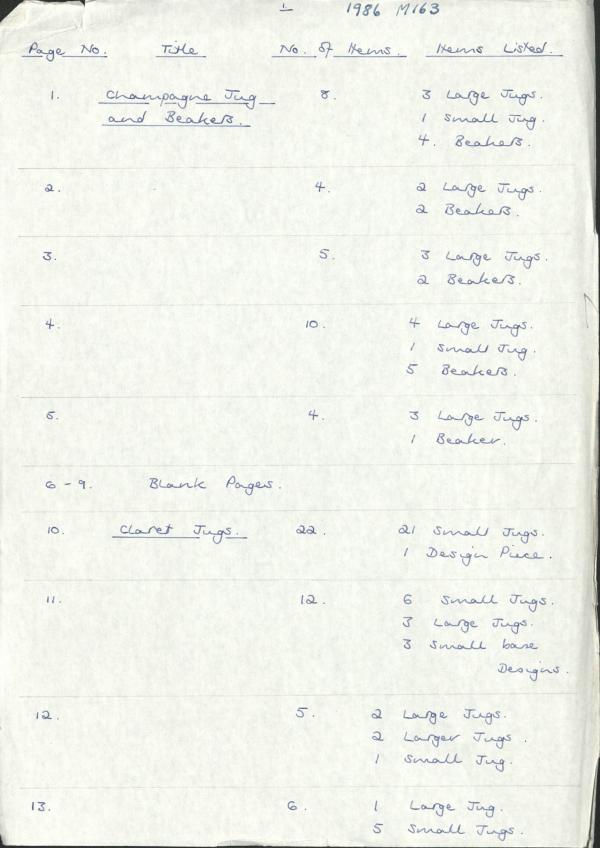 1. 1986 M163
Page No. Title No. of Items. Items Listed.
1. Champagne Jug 8. 3 Large Jugs.
and Beakers. 1 Small Jug.
4. Beakers.
2. 4. 2 Large Jugs.
2 Beakers.
3. 5. 3 Large Jugs.
2 Beakers.
4. 10. 4 Large Jugs.
1 Small Jug.
5 Beakers.
5. 4. 3 Large Jugs.
1 Beaker.
6 - 9. Blank Pages.
10. Claret Jugs. 22. 21 Small Jugs.
1 Design Piece.
11. 12. 6 Small Jugs.
3 Large Jugs.
3 Small base
Designs.
12. 5. 2 Large Jugs.
2 Larger Jugs.
1 Small Jug.
13. 6. 1 Large Jug.
5 Small Jugs.